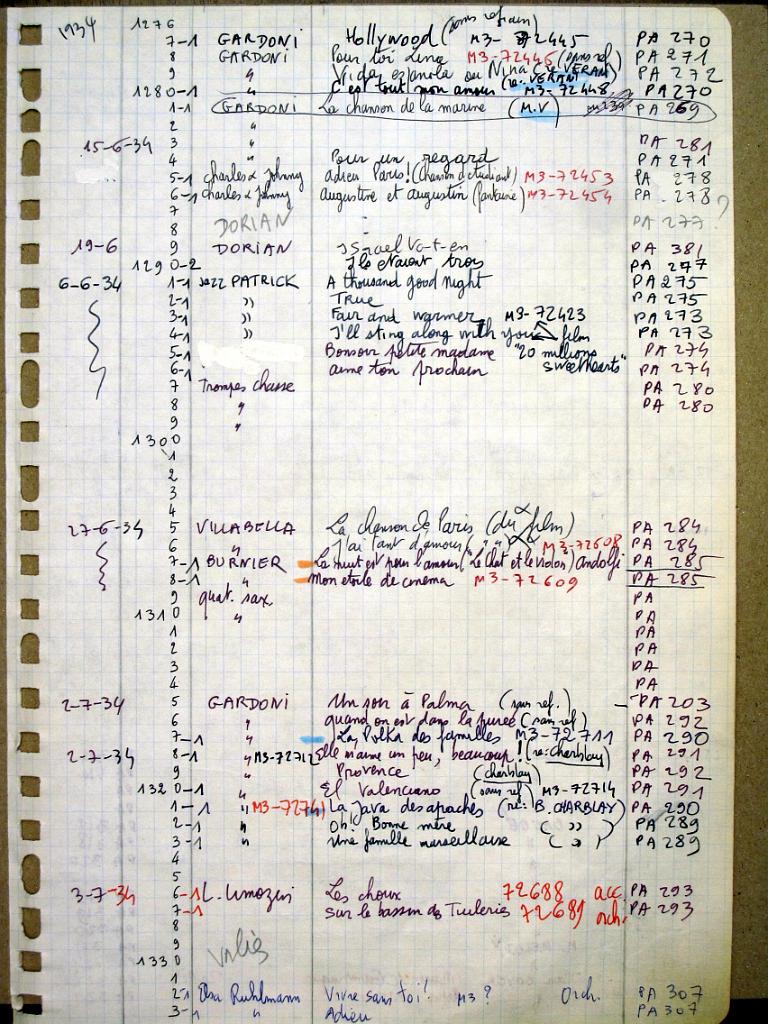 1934 1276
7-1 GARDONI Hollywood (sans refrain) M3-72445 PA 270
8 GARDONI Pour toi Line M3-72446 (sans ref) PA 271
9 " Vida española ou Nina (re: VERAN) PA 272
1280-1 " C'est tout mon amour (re: VERAN) M3-72448 PA 270
1-1 GARDONI La chanson de la marine (M.V) PA 269
2 "
15-6-34 3 " PA 281
4 " Pour un regard PA 271
5-1 Charles & Johnny adieu Paris! (Chanson d'étudiant) M3-72453 PA 278
6-1 Charles & Johnny augustine et augustin (fantaisie) M3-72454 PA 278
7
8 DORIAN PA 277?
19-6 9 DORIAN Israel Va-t-en PA 381
1290-2 Ils étaient trois PA 277
6-6-34 1-1 Jazz PATRICK A thousand good night PA 275
2-1 " True PA 275
3-1 " Fair and warmer M3-72423 PA 273
4-1 " I'll sting along with you film PA 273
5-1 Bonsoir petite madame "20 millions PA 274
6-1 aime ton prochain sweethearts" PA 274
7 Trompes chasse PA 280
8 " PA 280
9 "
1300
1
2
3
4
27-6-34 5 VILLABELLA La chanson de Paris (du film) PA 284
6 " J'ai tant d'amour (" ") M3-72608 PA 284
7-1 BURNIER La nuit est pour l'amour ("Le Chat et le violon") Andolfi PA 285
8-1 " Mon etoile de cinema M3-72609 PA 285
9 quat. sax PA
1310 " PA
1 PA
2 PA
3 PA
4 PA
2-7-34 5 GARDONI Un soir à Palma (sans ref.) - PA 203
6 " quand on est dans la puree (sans ref) PA 292
7-1 " La Polka des familles M3-72711 PA 290
2-7-34 8-1 " M3-72712 Elle m'aime un peu, beaucoup! (re: Charblay) PA 291
9 " Provence (charblay) PA 292
1320-1 " El Valenciano (sans ref) M3-72714 PA 291
1-1 " M3-72741 La Java des apaches (re: B. CHARBLAY) PA 290
2-1 " Oh! Bonne mère ( " ) PA 289
3-1 " Une famille marseillaise ( " ) PA 289
4
5
3-7-34 6-1 L. Limozin Les choux 72688 acc. PA 293
7-1 sur le bassin des Tuileries 72689 orch. PA 293
8
9
1330
1
2-1 Elsa Ruhlmann Vivre sans toi! M3? Orch. PA 307
3-1 " Adieu PA 307